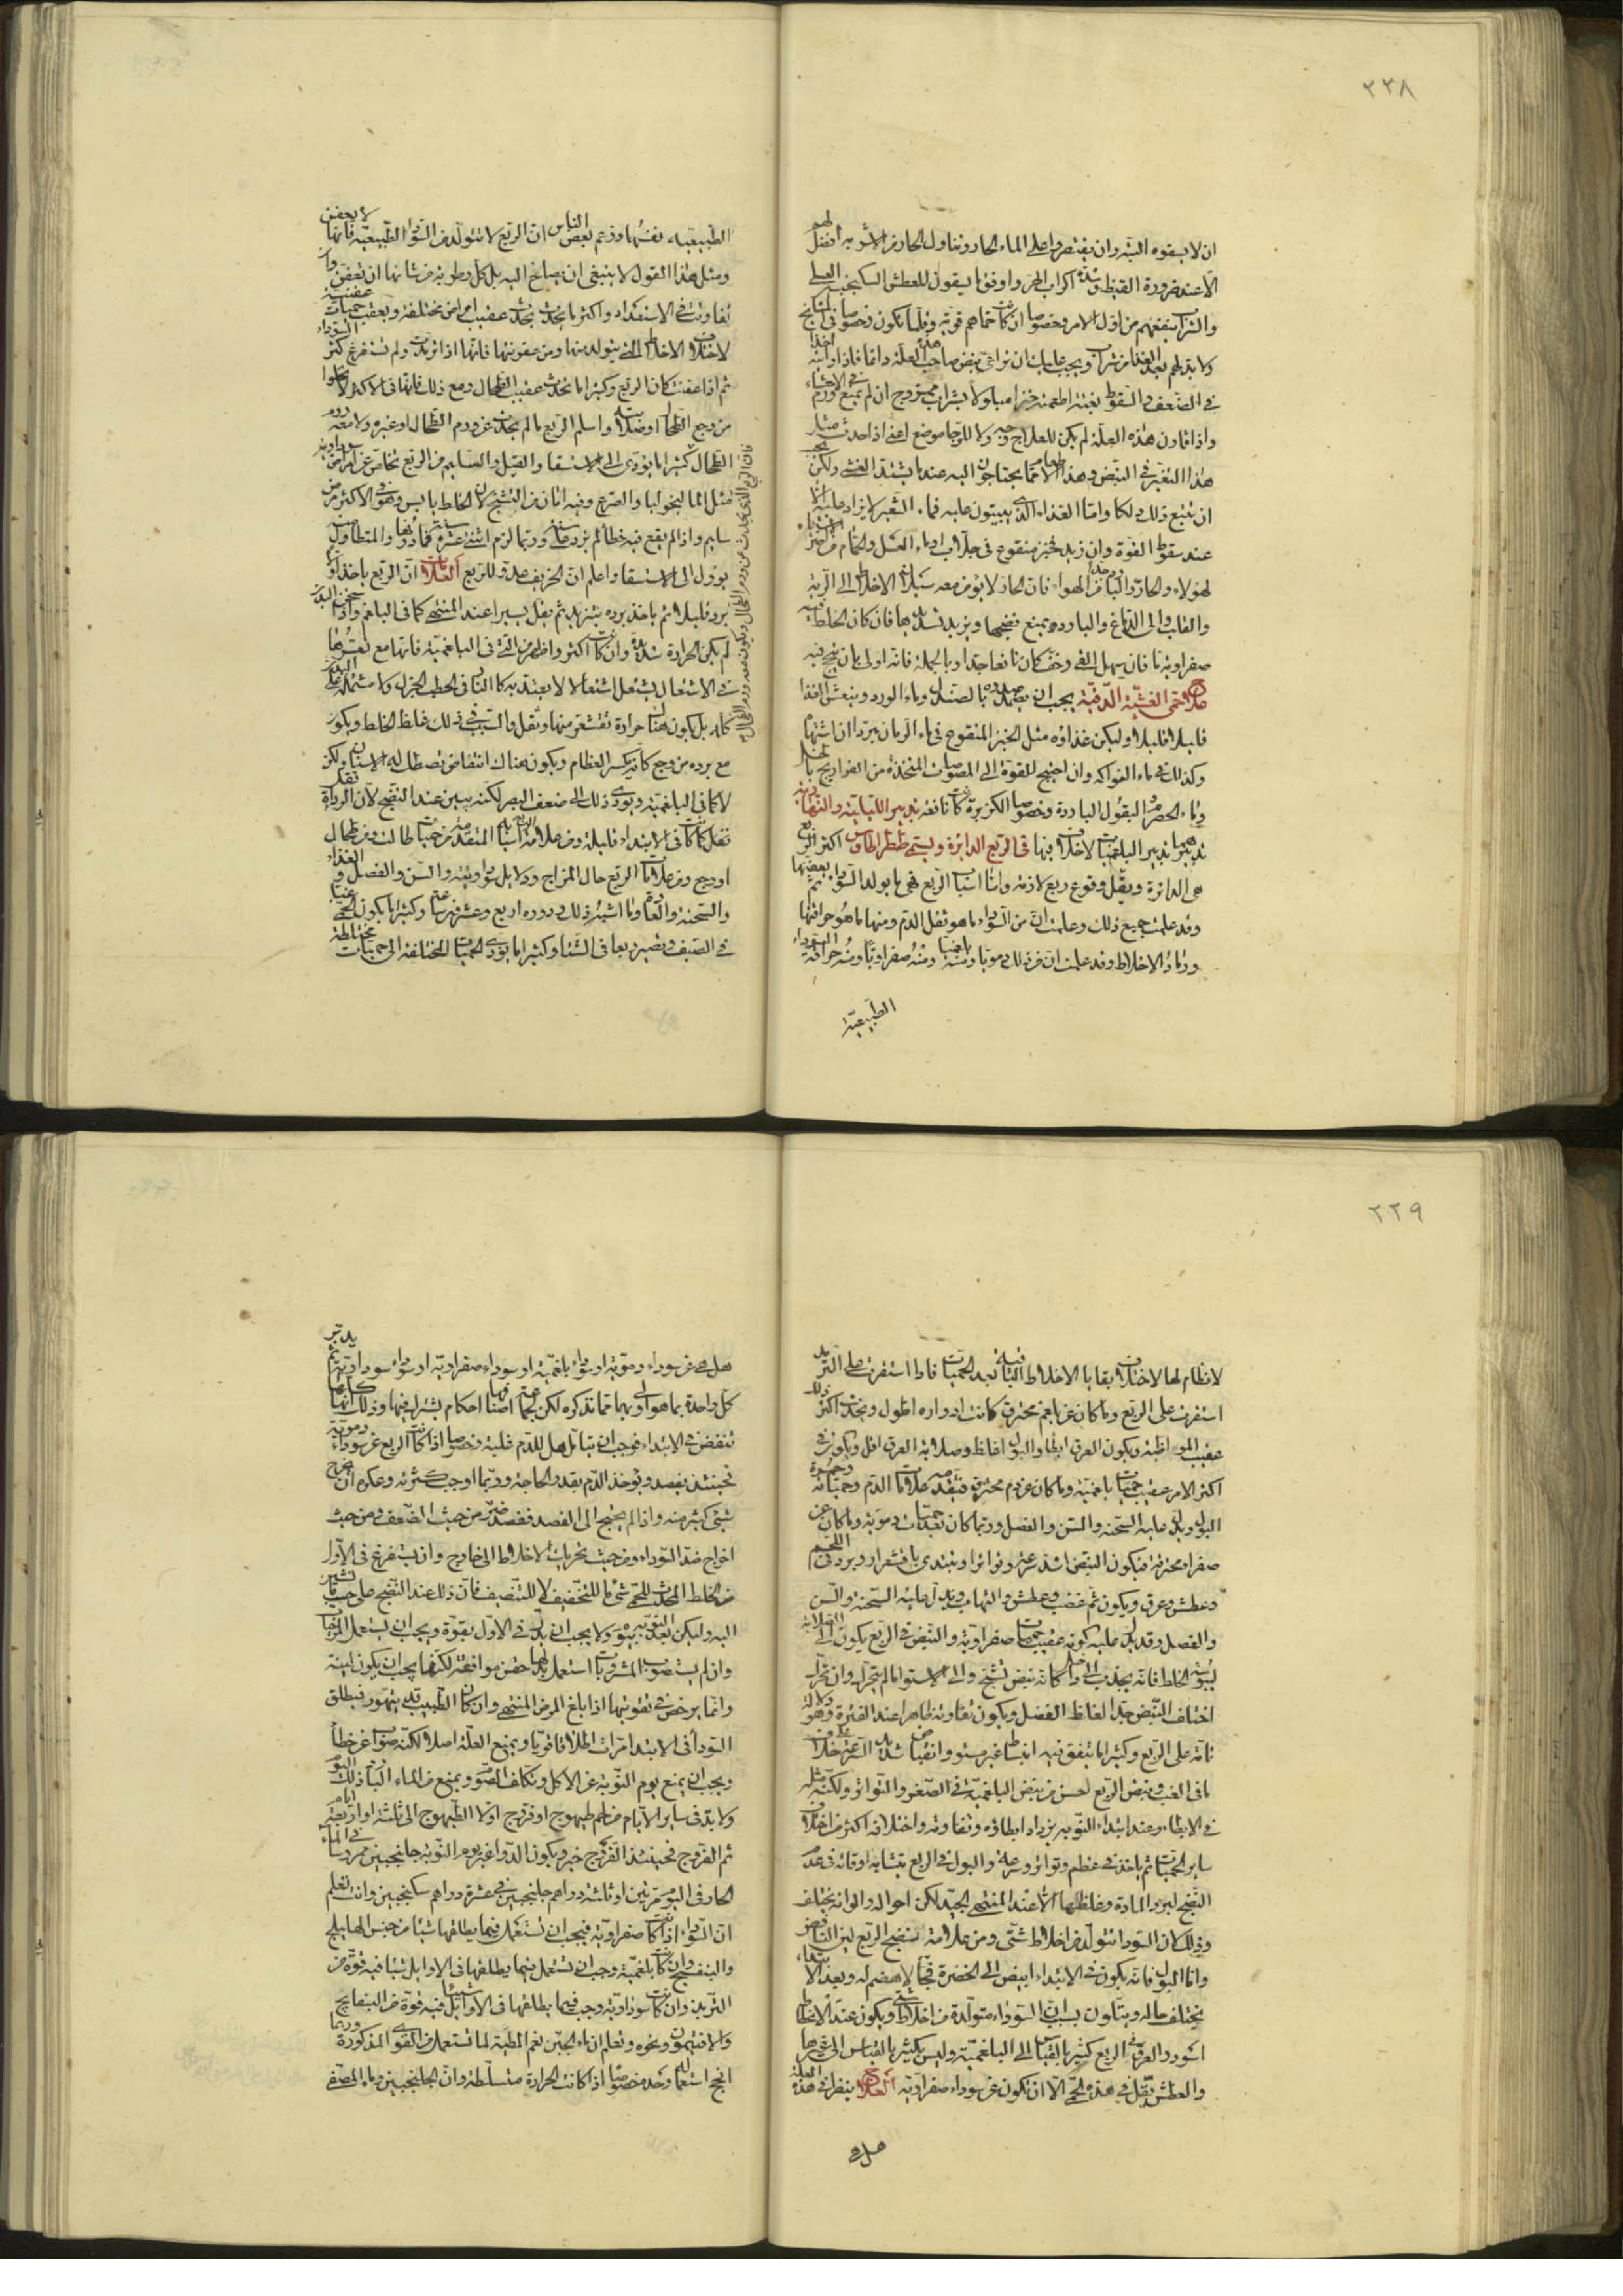 ٢٣٨
ان لا يسقوه البتة وان يقتصروا على الماء الحار وتناول الحار من الاشربة افضل لهم
الا عند ضرورة القيظ وشدة اكراب الحر واوفق ما يسقون للعطش السكنجبين العسلى
والشراب ينفعهم من اول الامر وخصوصا ان كانت حماهم قوية وقلما تكون وخصوصا فى المشايخ
ولا بد لهم بعد الغذاء من شراب ويجب عليك ان تراعى نبض صاحب هذه العلة دائما فاذا رأيته اخذ
فى الضعف والسقوط بغتة اطعمته خبزا مبلولا بشراب ممزوج ان لم يمنع ورم فى الاحشاء
واذا تهاون هذه العلة لم يكن للعلاج وجه ولا للرجا موضع اعنى اذا حدث مثل
هذا التغير فى النبض وهذا الطعام مما يحتاجون اليه عند ما يشتد الغشى ولكن يجب
ان تتبع ذلك دلكا واما الغذاء الذى يبيتون عليه فماء الشعير لا يزاد عليه الا
عند سقوط القوة وان زيد فخبز منقوع فى جلاب او ماء العسل والحمام من اضر الاشياء
لهؤلاء والحار والبارد جدا من الهواء فان الحار لا يؤمن معه سيلان الاخلاط الى الرية
والقلب والى الدماغ والبارد يمنع نضجها ويزيد تسديدها فان كان الخلط فيه
صفراوية ما فان يسهل القى وخف كان نافعا جدا وبالجملة فانه اولى بان ينجح فيه
علاج الحمى الغشية الدقيقة يجب ان يضمد صدره بالصندل وماء الورد وينعش بالغذا
قليلا قليلا وليكن غذاؤه مثل الخبز المنقوع فى ماء الرمان مبردا ان اشتهاه
وكذلك فى ماء الفواكه وان احتيج للقوة الى المصوصات المتخذة من الفراريج بالخل
وماء الحصرم والبقول الباردة وخصوصا الكزبرة كانت نافعة تدبير الليلية والنهارية
تدبيرهما تدبير البلغميات لا خلاف فيها فى الربع الدائرة ويسمى طيطراطاوس اكثر الربع
هى الدائرة ويقل وقوع ربع لازمة واما اسباب الربع فهى ما يولد السوداء ثم يعفنها
وقد علمت جميع ذلك وعلمت ان من السوداء ما هو ثفل الدم ومنها ما هو حراقتها
ورماد الاخلاط وقد علمت ان من ذلك دمويا ومنه بلغميا ومنه صفراويا ومنه حراقة السوداء
الطبيعية
الطبيعية نفسها وزعم بعض الناس ان الربع لا تتولد من السوداء الطبيعية فانها لا تعفن
ومثل هذا القول لا ينبغى ان يصاخ اليه بل كل رطوبة من شانها ان تعفن وان
تفاوتت فى الاستعداد واكثر ما تحدث تحدث عقيب امراض مختلفة وتعقب حميات عفنية
لاختلاف الاخلاط التى يتولد منها ومن عفونتها فانها اذا ترمدت ولم تستفرغ كثر السوداء
ثم اذا عفنت كان الربع وكثيرا ما تحدث عقيب الطحال ومع ذلك فانها فى الاكثر لا تخلوا
من وجع الطحال او صلابته واسلم الربع ما لم يحدث عن ورم الطحال او غيره ولا معه ورم
الطحال كثيرا ما يؤدى الى الاستسقا والقيل والسليم من الربع تخلص عن امراض سوداوية
مثل المالنخوليا والصرع وفيه امان من التشنج لان الخلط يابس وهو فى الاكثر مرض
سليم واذا لم يقع فيه خطأ لم يزد على سنة وربما لزم اثنى عشرة سنة فما دونها والمتطاول منه
يؤول الى الاستسقا واعلم ان الخريف عدو للربع العلامات ان الربع ياخذ اولا
ببرد قليلا ثم ياخذ برده يتزيد ثم يقل يسيرا عند المنتهى كما فى البلغم واذا سخن البدن
لم يكن الحرارة شديدة وان كانت اكثر واظهر من التى فى البلغمية فانها مع تعسرها
فى الاشتعال يشتعل اشتعالا لا يعتد به كالنار فى الحطب الجزل ولا مشتملة على البدن
كله بل يكون هناك حرارة تقشعر منها وثقل والسبب فى ذلك غلظ الخلط ويكون
مع برده من وجع كانه يكسر العظام ويكون هناك انتفاض تصطك له الاسنان ولكن
لا كما فى البلغمية ويؤدى ذلك الى ضعف البصر لكنه يبين عند النضج لان البرودة تقل
تقل كما كانت فى الابتداء قليلة ومن علاماته اسبابه المتقدمة من حميات طالت ومن طحال
او وجع ومن علامات الربع حال المزاج ودلايل سوداويته والسن والفصل والغذاء
والسحنة والعادة وما اشبه ذلك ودوره اربع وعشرون ساعة وكثيرا ما يكون الحمى غبا
فى الصيف وتصير ربعا فى الشتا وكثيرا ما يؤدى الحميات المختلفة الى حميات مختلطة
فان الربع الذى يحدث عن ورم الطحال ويكون معه ورم الطحال
٢٢٩
لا نظام لها لاختلاف بقايا الاخلاط الباقية بعد الحميات فاذا استقرت على الترمد
استقرت على الربع وما كان عن بلغم محترق كانت ادواره اطول ويحدث اكثر ذلك
عقيب المواظبة ويكون العرق ابطأ والبول اغلظ وصلابة العرق اقل ويكون فى
اكثر الامر عقيب حميات بلغمية وما كان عن دم محترق فتقدمه علامات الدم وحمياته وحمرة
البول ويدل عليه السحنة والسن والفصل وربما كان بعد حميات دموية وما كان عن
صفراء محترقة فيكون النبض اشد سرعة وتواترا ويبتدى باقشعرار وبرد فى اللحم
وعطش وعرق ويكون ثم غضب وعطش والتهاب ويدل عليه السحنة والسن
والفصل وقد يدل عليه كونه عقيب حميات صفراوية والنبض فى الربع يكون الى الصلابة
ليبوسة الخلط فانه يجذب الى داخل كانه نبض شيخ والى الاستواء ما لم يتحرك وان تحرك
اختلف النبض جدا لغلظ الفضل ويكون تفاوته ظاهرا عند الفترة وهو دلالة
تامة على الربع وكثيرا ما يتفق فيه انبساط غير مستو وانقباض شديد السرعة خلاف
ما فى الغب ونبض الربع احسن من نبض البلغمية فى الصغر والتواتر ولكنه مثله
فى الابطاء وعند ابتداء النوبة يزداد ابطاؤه وتفاوته واختلافه اكثر من اختلاف
سائر الحميات ثم ياخذ فى عظم وتواتر وسرعة والبول فى الربع متشابه اوقاته فى عدم
النضج لبرد المادة وغلظها الا عند المنتهى الجيد لكن احواله والوانه يختلف
وذلك لان السوداء تتولد من اخلاط شتى ومن علامة نضج الربع لين النافض
واما البول فانه يكون فى الابتداء ابيض الى الخضرة فجا لا هضم له وبعد الابتداء
يختلف حاله ويتلون بسبب ان السوداء متولدة من اخلاط شتى ويكون عند الانحطاط
اسود والعرق فى الربع كثير بالقياس الى البلغمية وليس بكثير بالقياس الى غيرها
والعطش يقل فى هذه الحمى الا ان تكون عن سوداء صفراوية العلاج ينظر فى هذه العلة
هل هى
هل هى عن سوداء دموية او سوداء بلغمية او سوداء صفراوية او سوداء سوداوية ثم يدبر
كل واحدة بما هو اولى بها مما نذكره لكن جميع اصنافها احكام يشترك فيها وذلك انها كلها
تنقص فى الابتداء فيجب ان يتامل هل للدم غلبة وخصوصا اذا كانت الربع عن سوداء دموية
فحينئذ يفصد ويؤخذ الدم بقدر الحاجة وربما اوجب كثرته وعكره ان يخرج
شىء كثير منه واذا لم يحتج الى الفصد ففصد ضر من حيث الضعف ومن حيث
اخراج ضد السوداء ومن حيث تحريك الاخلاط الى خارج وان يستفرغ فى الاول
من الخلط المحدث للحمى شىء ما للتخفيف لا للتنصيف فان ذلك عند النضج على حسب ما تشير
اليه وليكن بعد النوبة بيوم ولا يجب ان يدر فى الاول بقوة ويجب ان يستعمل المزلقات
وان لم يستصوب المشروبات استعمل بدلها حقن موافقة لكنها يجب ان يكون لينة
وانما يرخص فى تقويتها اذا بلغ المرض المنتهى وان كان الطبيب قد يتهور فيطلق
السوداء فى الابتداء مرات اطلاقا قويا ويمنع العلة اصلا لكنه صواب عن خطأ
ويجب ان يمنع يوم النوبة عن الاكل ويكلف الصوم ويمنع من الماء البارد ذلك اليوم
ولا بد فى سائر الايام من لحم طيهوج او فروج اولا الطيهوج الى ثلثة او اربعة ايام
ثم الفروج فحينئذ الفروج خير ويكون الدواء غير يوم النوبة جلنجبين ممروسا فى الماء
الحار فى اليوم مرتين او ثلثة دراهم جلنجبين فى عشرة دراهم سكنجبين وانت تعلم
ان السوداء اذا كانت صفراوية فيجب ان تستعمل فيما يطلقها شيئا من جنس الهليلج
والبنفسج وان كانت بلغمية وجب ان تستعمل فيما يطلقها فى الاوايل شيئا فيه قوة من
التربد وان كانت سوداوية وجب فيما يطلقها فى الاوايل شيئا فيه قوة من البسفايج
والافتيمون ونحوه وتعلم ان ماء الجبن نعم المطية لما تستعمل من القوى المذكورة وربما
انجح استعماله وحده خصوصا اذا كانت الحرارة متسلطة وان الجلنجبين وماءه المصفى